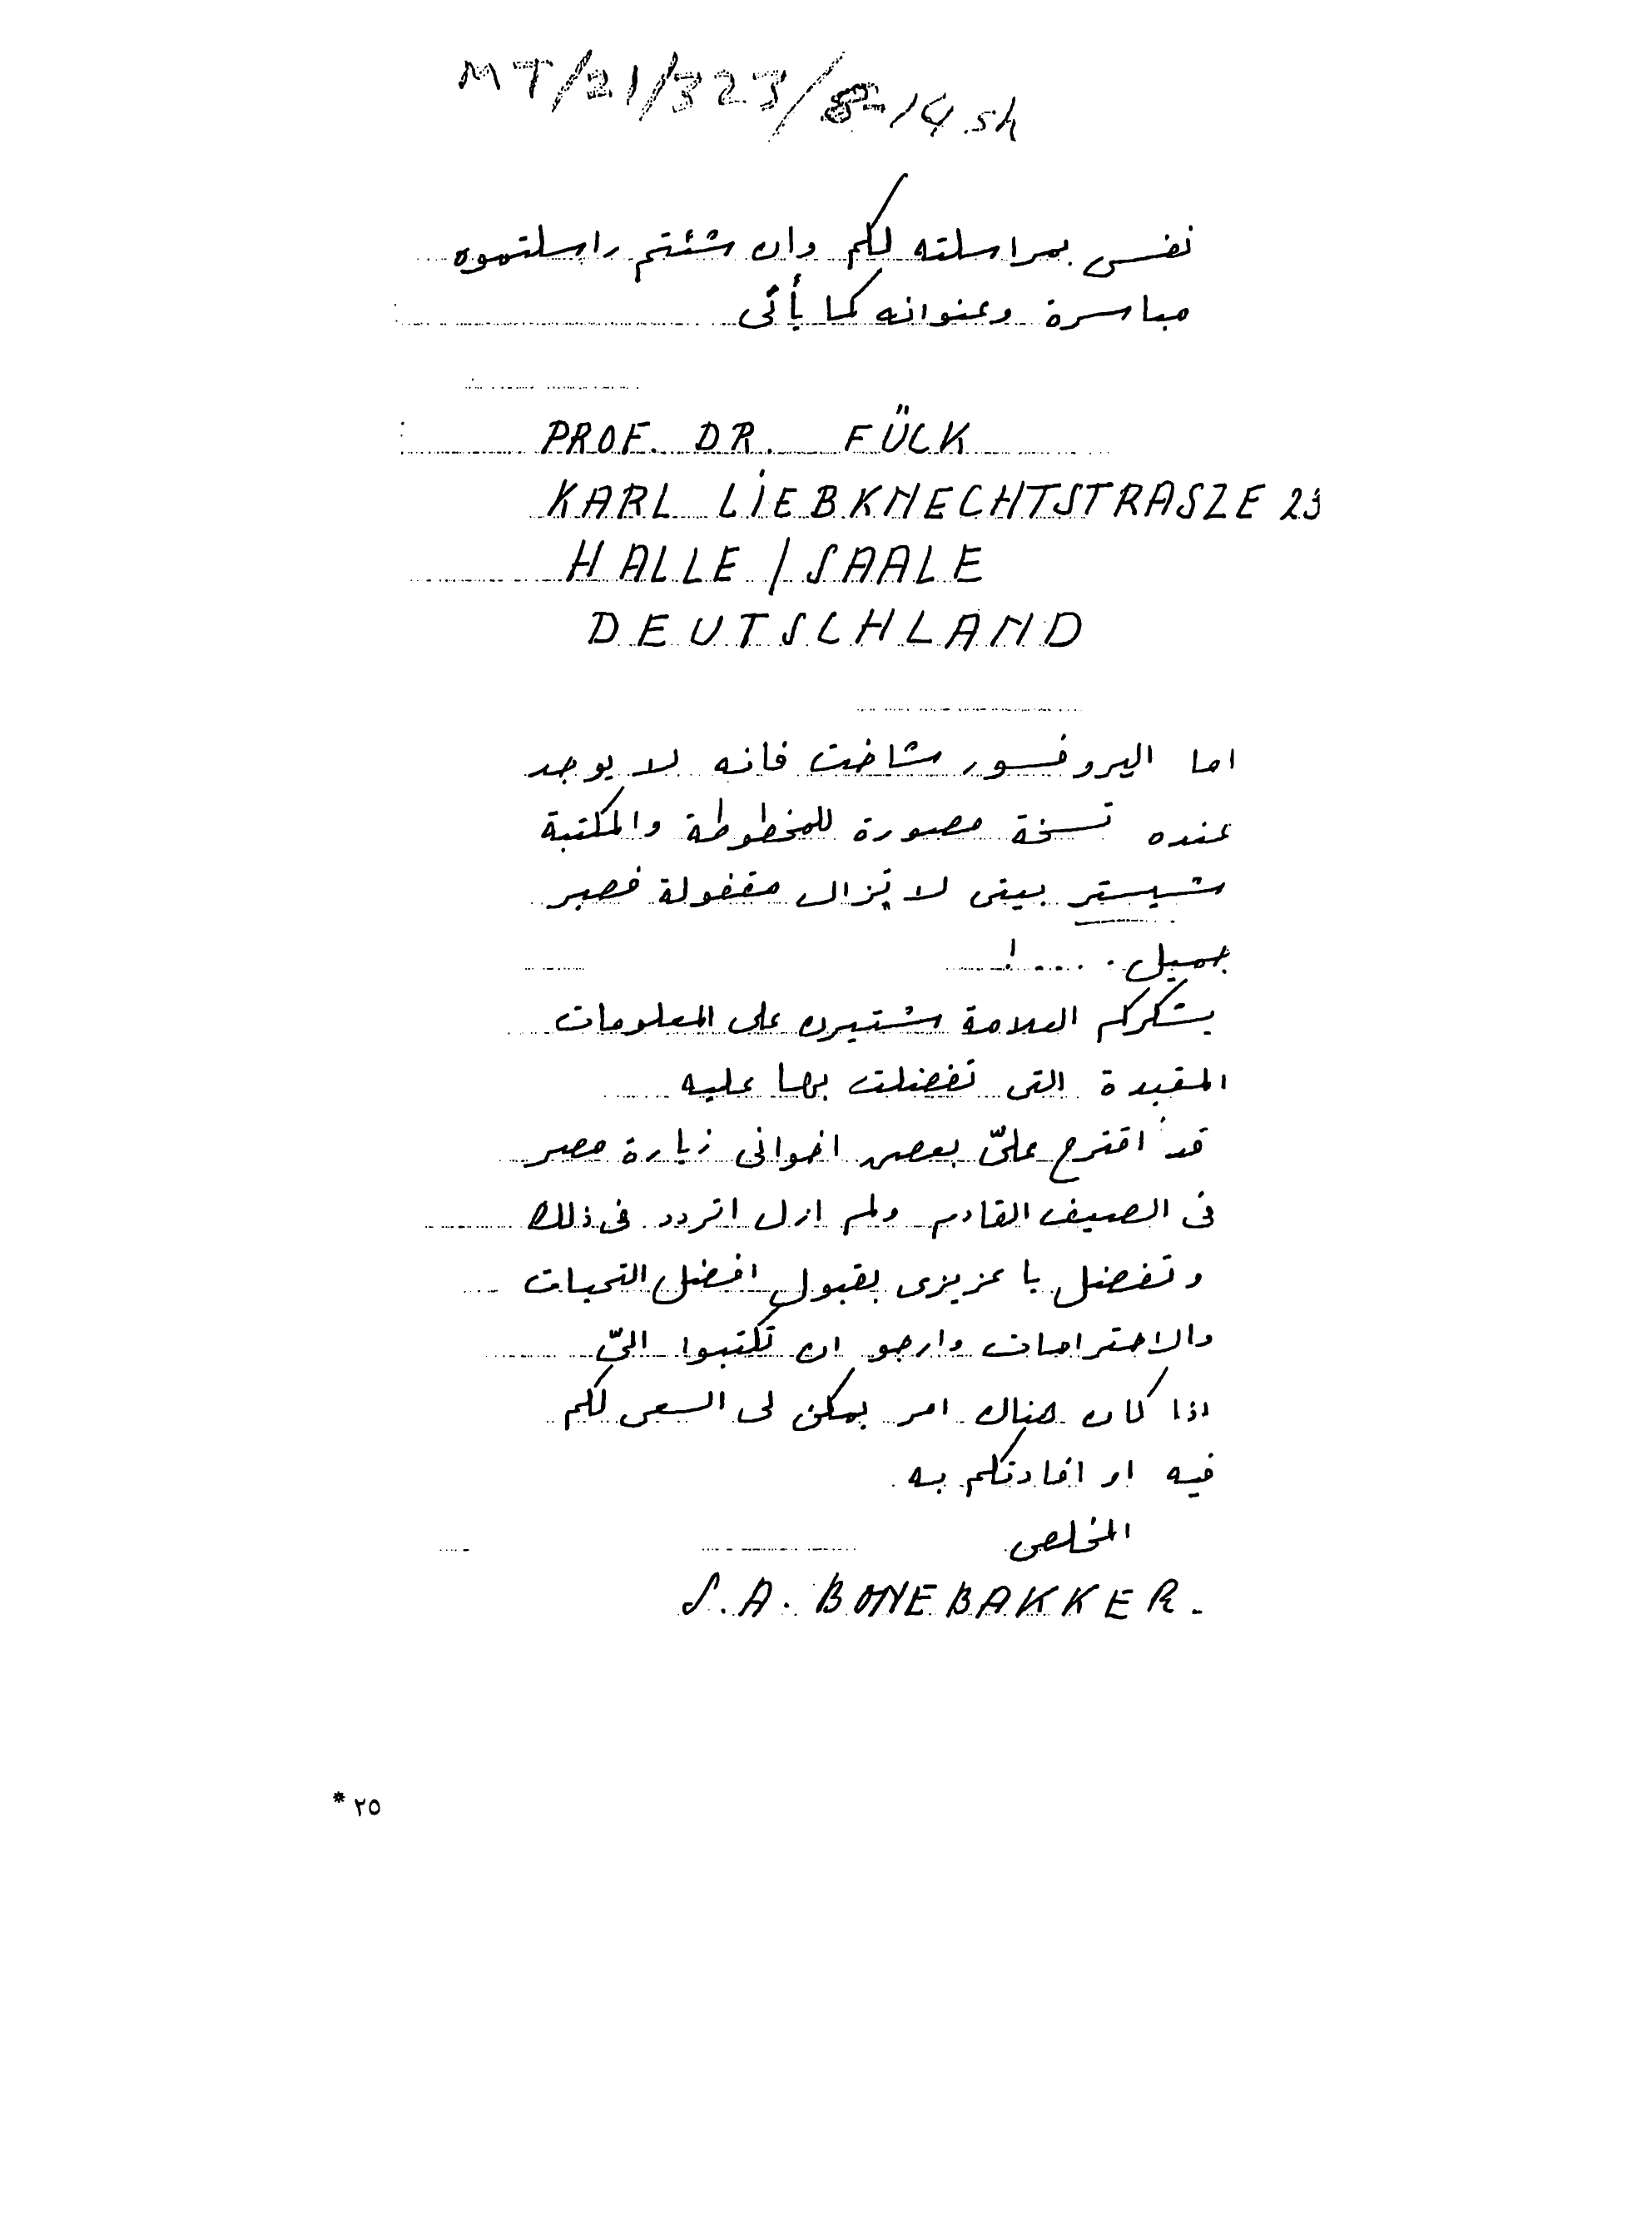 MT/21/323/8-14.sh
نفسى بمراسلته لكم وان شئتم راسلتموه
مباسرة وعنوانه كما يأتى
PROF. DR. FÜCK
KARL LIEBKNECHTSTRASZE 23
HALLE / SAALE
DEUTSCHLAND
اما البروفسور شاخت فانه لا يوجد
عنده نسخة مصورة للمخطوطة والمكتبة
شيستر بيتى لا تزال مقفولة فصبر
جميل . . . . !
يشكركم العلامة شتيرن على المعلومات
المفيدة التى تفضلت بها عليه
قد اقترح علىّ بعض اخوانى زيارة مصر
فى الصيف القادم ولم ازل اتردد فى ذلك
وتفضل يا عزيزى بقبول افضل التحيات
والاحترامات وارجو ان تكتبوا الىّ
اذا كان هناك امر يمكن لى السعى لكم
فيه او افادتكم به
المخلص
S.A. BONEBAKKER.
* ٢٥